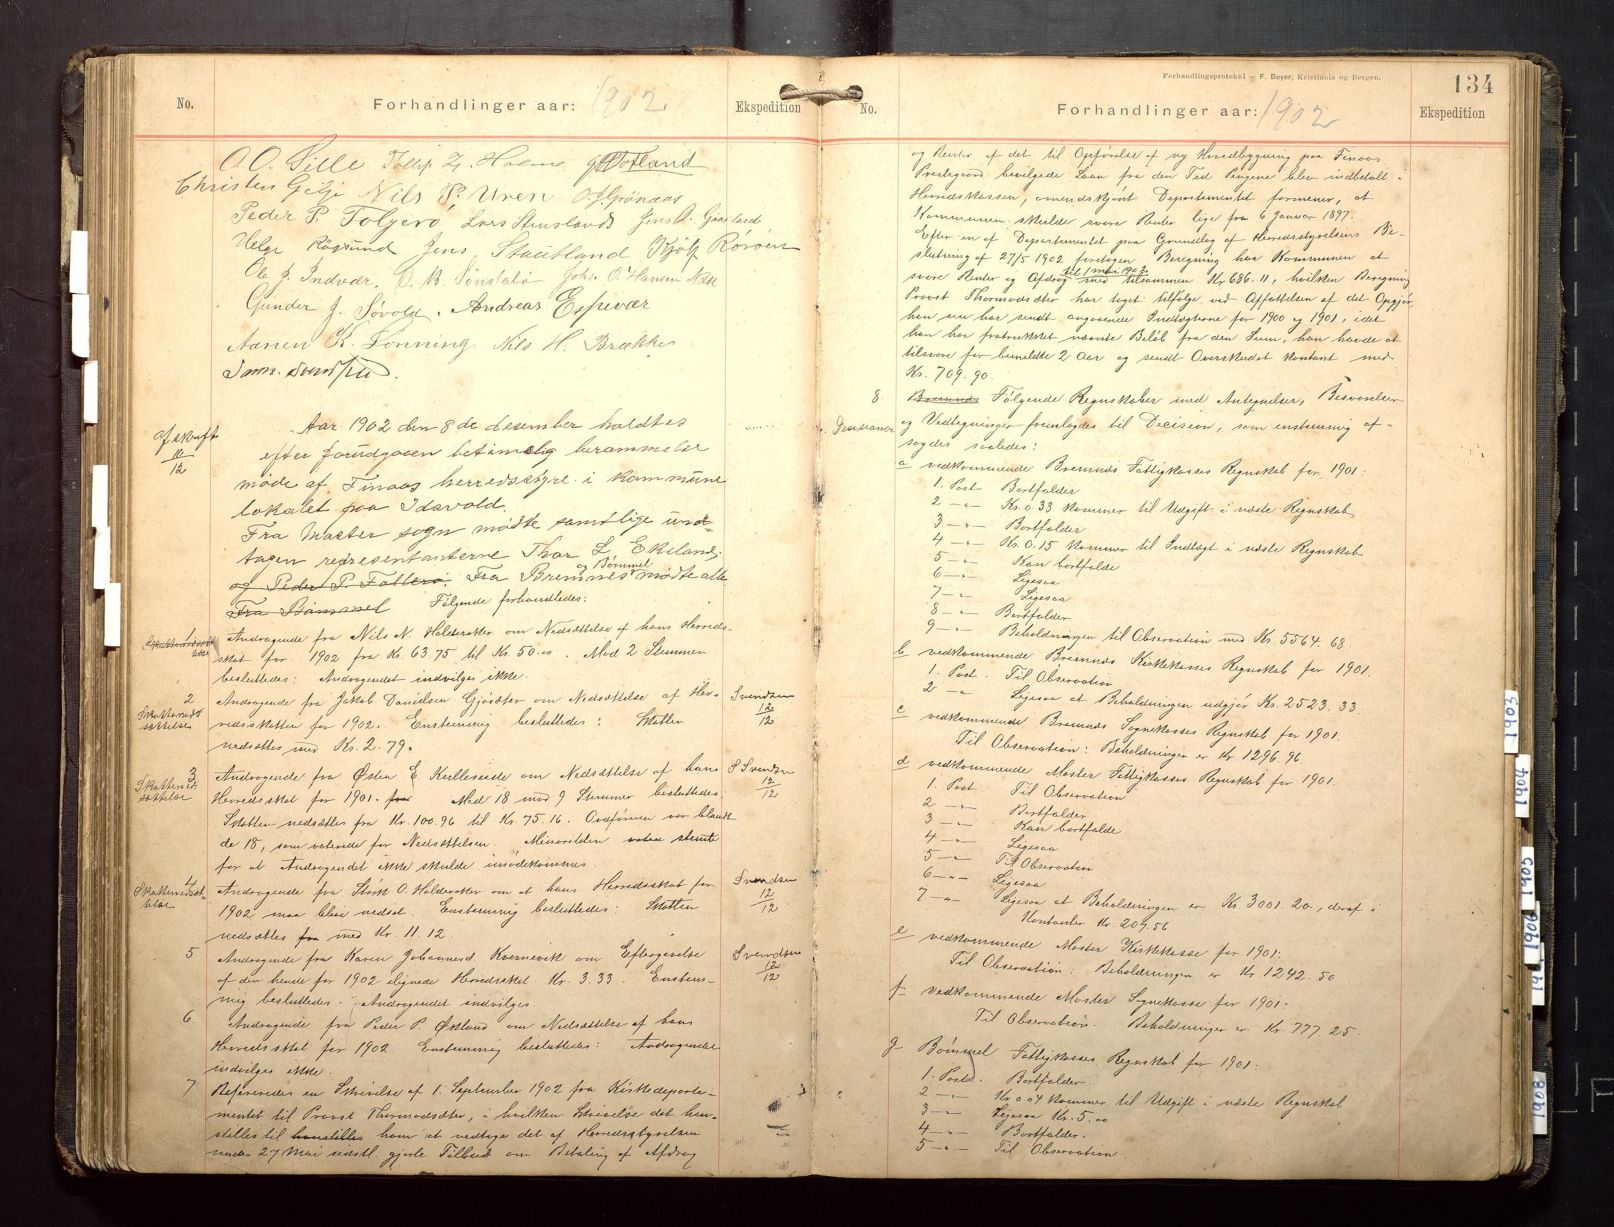 No.
Forhandlinger aar: 1902
Ekspedition
O O. Sille Tollef Z. Holme Totland
Christen Geitzi Nils P. Uren O. H. Grönaas
Peder P. Folgerö Lars Stensland Jens O. Gaasland
Helge Røgsund Jens Stautland Kjöl Rörøen
Ole J. Indvær. O. B. Sönstabö Joh. O. Hansen Næss
Gunder J. Søvold. Andreas Espevær
Aanen K. Lønning Nils H. Brække
Afskrift
11/12
Aar 1902 den 8de desember holdtes
efter forudgaaen betimelig berammelse
møde af Finaas herredsstyre i kommune
lokalet paa Idavold.
Fra Moster sogn mødte samtlige und-
tagen representanterne Thor L. Ekeland,
og Bömmel
og Peder P. Folgerö. Fra Bremnes mødte alle
Fra Bömmel Følgende forhandledes:
1
Andragende fra Nils N. Halderaker om Nedsættelse af hans Herreds-
skat for 1902 fra Kr. 63.75 til Kr. 50.00. Mod 2 Stemmer
besluttedes: Andragendet indvilges ikke.
2
Skattenedsættelse
Andragende fra Jakob Danielsen Gjøsæter om Nedsættelse af Her-
redsskatten for 1902. Enstemmig besluttedes: Skatten
nedsættes med Kr. 2.79.
Svendsen
12/12
3
Skattenedsættelse
Andragende fra Østen E. Kulleseide om Nedsættelse af hans
Herredsskat for 1901. fra Mod 18 mod 9 Stemmer besluttedes:
Skatten nedsættes fra Kr. 100.96 til Kr. 75.16. Ordføreren var blandt
de 18, som voterede for Nedsættelsen. Minoriteten stemte
for at Andragendet ikke skulde imødekommes.
S Svendsen
12/12
4
Skattenedsættelse
Andragende fra Størk O. Halderaker om at hans Herredsskat for
1902 maa blive nedsat. Enstemmig besluttedes: Skatten
nedsættes fra med Kr. 11.12
Svendsen
12/12
5
Andragende fra Karen Johannesd. Kvernevik om Eftergivelse
af den hende for 1902 ilignede Herredsskat Kr. 3.33. Enstem-
mig besluttedes: Andragendet indvilges.
Svendsen
12/12
6
Andragende fra Peder P. Østland om Nedsættelse af hans
Herredsskat for 1902 Enstemmig besluttedes: Andragendet
indvilges ikke.
7
Refereredes en Skrivelse af 1. September 1902 fra Kirkedeparte-
mentet til Provst Thormodsæter, i hvilken Skrivelse det hen-
stilles til hanstilles ham at vedtage det af Herredsstyrelsen
under 27 Mai sidstl. gjorte Tilbud om Betaling af Afdrag
Forhandlingsprotokol – F. Beyer, Kristiania og Bergen.
134
No.
Forhandlinger aar: 1902
Ekspedition
og Renter af det til Opførelse af ny Hovedbygning paa Finaas
Prestegaard bevilgede Laan fra den Tid Pengene blev indbetalt i
Herredskassen, omendskjønt Departementet formener, at
Kommunen skulde svare Renter lige fra 6 Januar 1897.
Efter en af Departementet paa Grundlag af Herredsstyrelsens Be-
slutning af 27/5 1902 foretagen Beregning har Kommunen at
til 1 mai 1902
svare Renter og Afdrag med tilsammen Kr 686.11, hvilken Beregning
Provst Thormodsæter har taget tilfølge ved Affattelsen af det Opgjør,
han nu har sendt angaaende Indtægterne for 1900 og 1901, idet
han har fratrukket nævnte Beløb fra den Sum, han havde at
tilsvare for bemeldte 2 Aar og sendt Overskudet kontant med
Kr. 709.90.
8
Decisioner
Bremnes Følgende Regnskaber med Antegnelser, Besvarelser
og Vedtegninger fremlagdes til Decision, som enstemmig af-
sagdes saaledes:
a vedkommende Bremnes Fattigkasses Regnskab for 1901:
1. Post Bortfalder
2 — " — Kr. 0.33 kommer til Udgift i næste Regnskab
3 — " — Bortfalder
4 — " — Kr. 0.15 kommer til Indtægt i næste Regnskab
5 — " — Kan bortfalde
6 — " — Ligesaa
7 — " — Ligesaa
8 — " — Bortfalder
9 — " — Beholdningen til Observation med Kr. 5564.68.
b vedkommende Bremnes Kirkekasses Regnskab for 1901.
1. Post. Til Observation
2 — " Ligesaa at Beholdningen udgjør Kr. 2523.33.
c vedkommende Bremnes Sognekasses Regnskab for 1901.
Til Observation: Beholdningen er Kr 1296.96.
d vedkommende Moster Fattigkasses Regnskab for 1901.
1. Post Til Observation
2 — " — Bortfalder
3 — " — Kan bortfalde
4 — " — Ligesaa
5 — " — Til Observation
6 — " — Ligesaa
7 — " — Ligesaa at Beholdningen er Kr. 3001.20, deraf i
Kontanter Kr. 209.56
e vedkommende Moster Kirkekasse for 1901:
Til Observation: Beholdningen er Kr 1242.50
f vedkommende Moster Sognekasse for 1901.
Til Observation. Beholdningen er Kr. 777.25.
g Bömmel Fattigkasses Regnskab for 1901.
1. Post. Bortfalder.
2 — " — Kr 0.04 kommer til Udgift i næste Regnskab
3 — " — Ligesaa Kr. 5.00
4 — " — Bortfalder.
5 — " — Til Observation.
1903
1904
1905
1906
1908